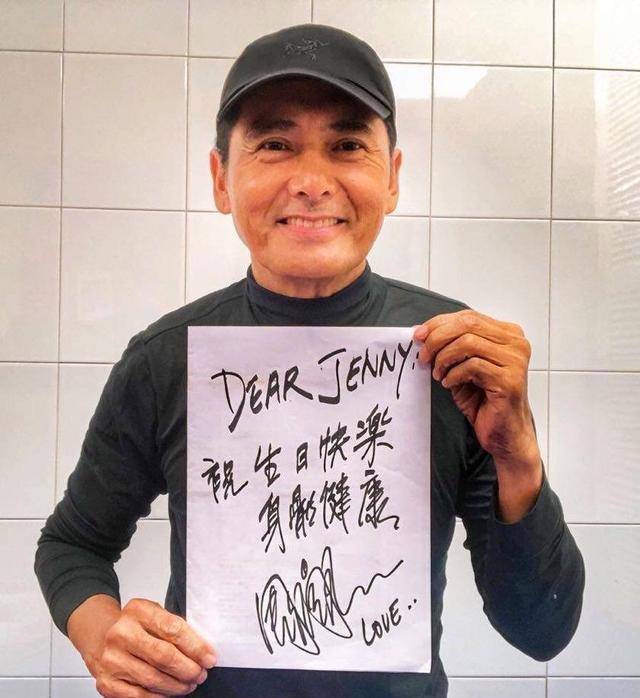 DEAR JENNY:
祝生日快楽
身體健康
LOVE..